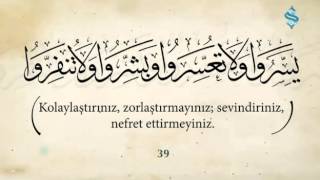 يَسِّرُوا وَلَا تُعَسِّرُوا وَبَشِّرُوا وَلَا تُنَفِّرُوا
Kolaylaştırınız, zorlaştırmayınız; sevindiriniz,
nefret ettirmeyiniz.
39